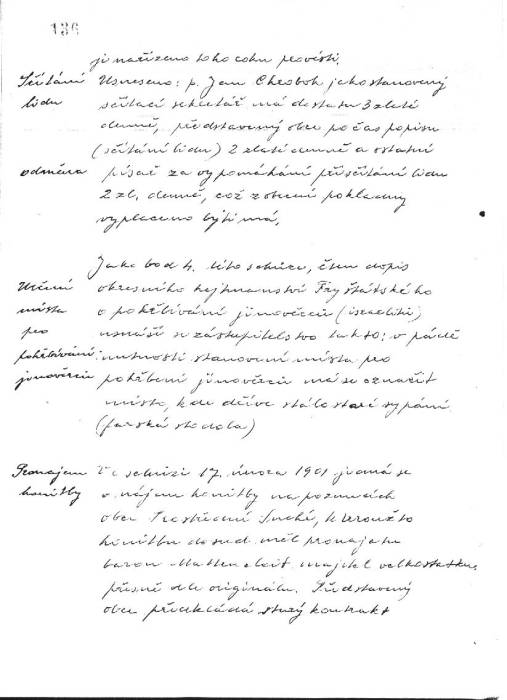 136
ji nařízeno toho cohn provésti.
Sčítání Usneseno: p. Jan Chroboh jako stanovený
lidu sčítací sekretář má dostatu 3 zlaté
denně, představený obce po čas popisu
(sčítání lidu) 2 zlaté denně a ostatní
odměna písař za vypomáhání při sčítání lidu
2 zl. denně, což z obecní pokladny
vyplaceno býti má.
Jako bod 4. této schůze, čten dopis
Určení okresního hejtmanství Fryštátského
místa o pohřbívání jinověrců (israelité)
pro usnáší se zastupitelstvo takto: v pádě
pohřbívání nutnosti stanovení místa pro
jinověrců pohřbení jinověrců má se označit
místo, kde dříve stálo staré sypání
(farská stodola)
Pronajem Ve schůzi 17. února 1901 jedná se
honitby o nájem honitby na pozemcích
obce Prostřední Suché, kteroužto
honitbu dosud měl pronajatu
baron majitel velkostatku,
přesně dle originálu. Představený
obce předkládá starý kontrakt